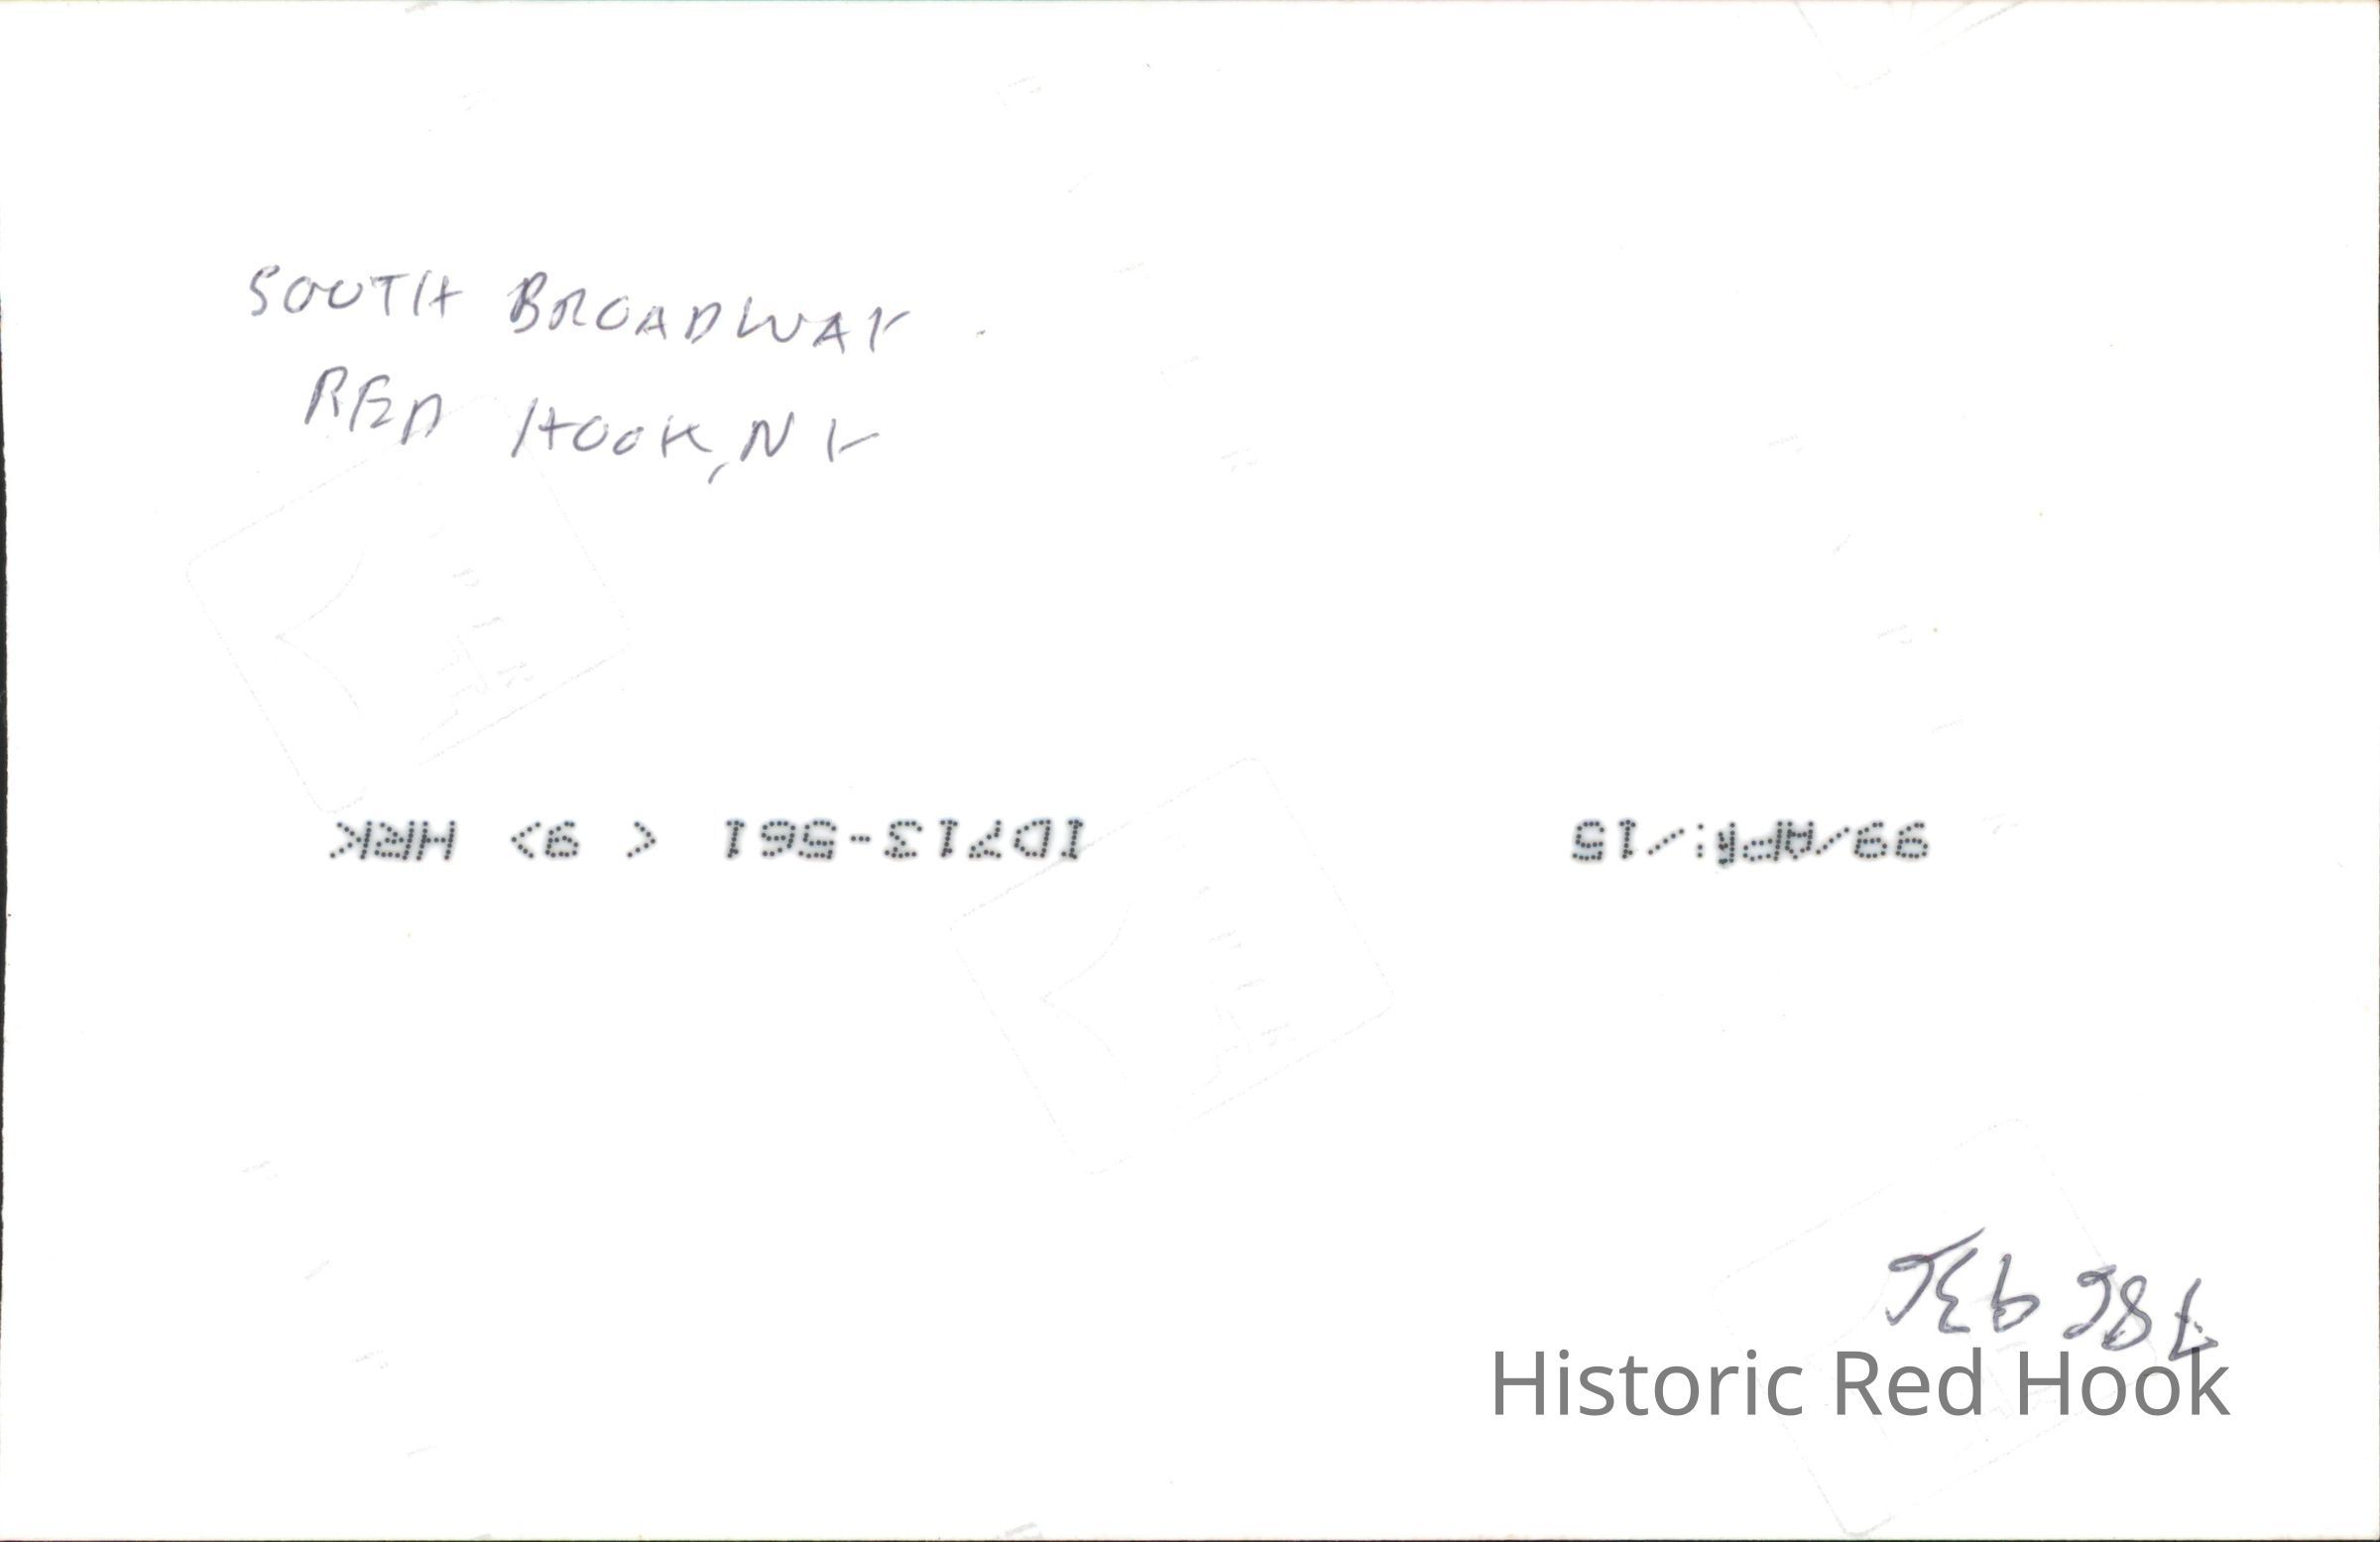 SOUTH BROADWAY
RED HOOK, NY
99/APR:/15 1D713-561 < 9> HRK
Historic Red Hook